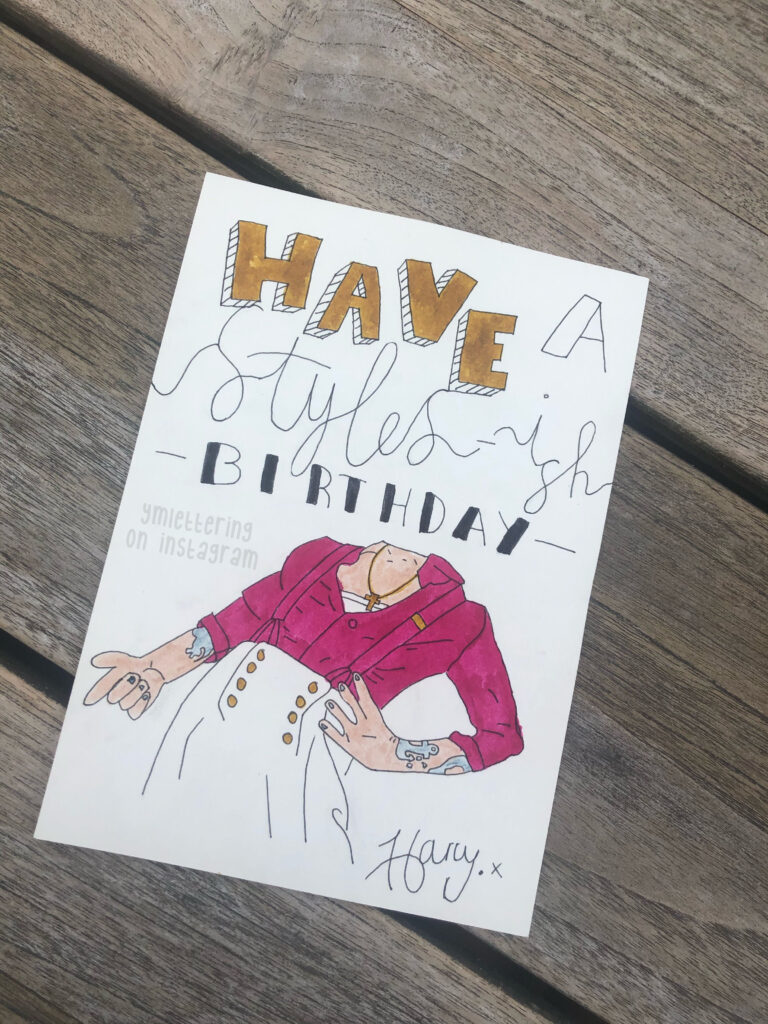 HAVE A
Styles-ish
-BIRTHDAY-
ymlettering
on instagram
Harry.x